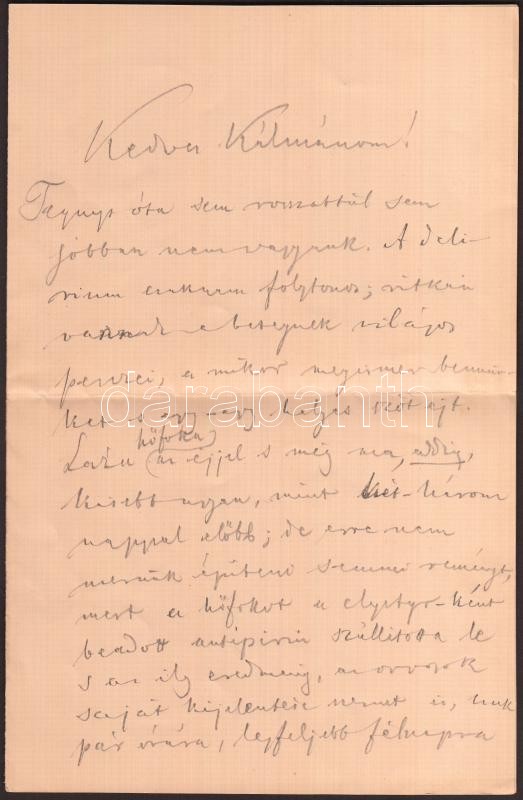 Kedves Kálmánom!
Tegnap óta sem rosszabbúl sem
jobban nem vagyunk. A deli-
rium csaknem folytonos; ritkán
vannak a betegnek világos
perczei, a mikor megismer bennün-
ket s egy-egy helyes szót ejt.
hőfoka
Láza az éjjel s még ma, eddig,
kisebb ugyan, mint két-három
nappal előbb; de erre nem
merünk építeni semmi reményt,
mert a hőfokot a clystyr-ként
beadott antipirin szállitotta le
s az ily eredmény, az orvosok
saját kijelentése szerint is, csak
pár órára, legfeljebb félnapra
darabanth